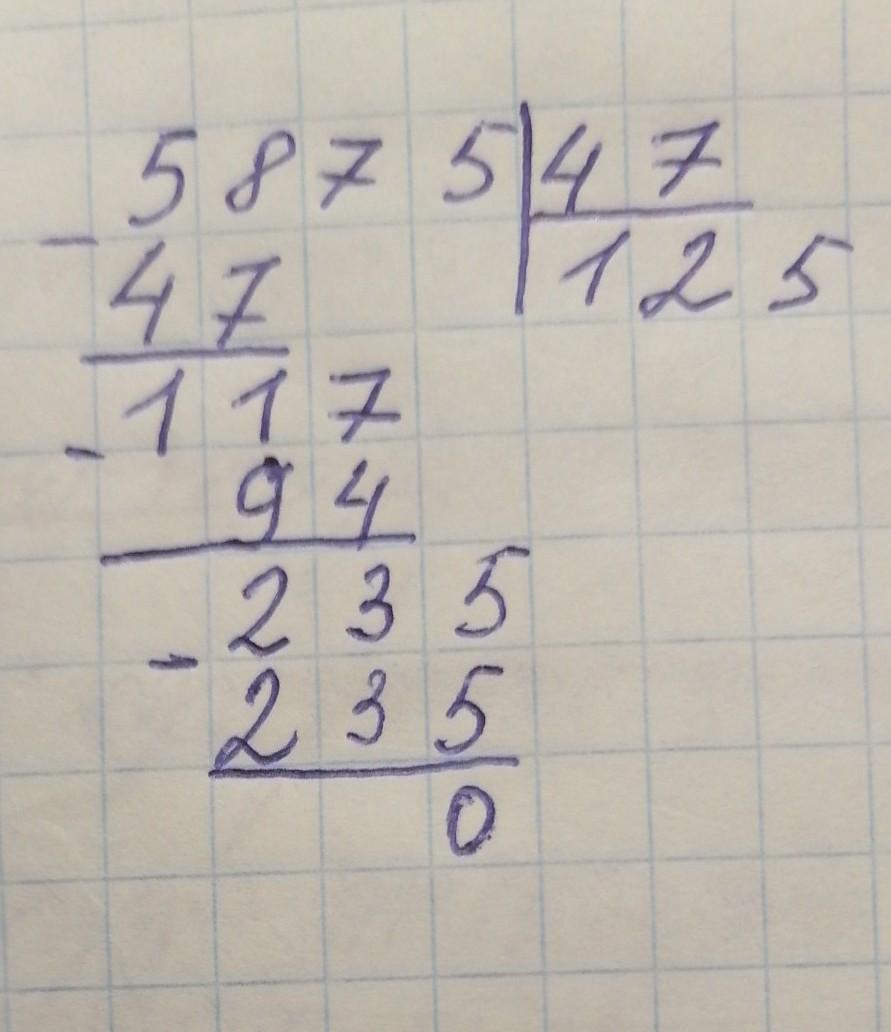 5875|47
-47 125
-117
94
-235
235
0